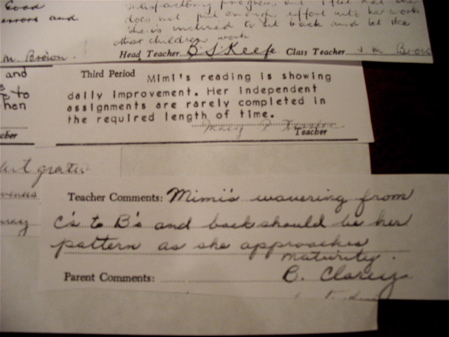 Good
errors and
satisfactory progress
does not put enough effort into her work
She is inclined to sit back and let the
other children work
M. Brown.
Head Teacher B S Keefe Class Teacher J. M. Brown
and
to
hen
cher
Third Period Mimi's reading is showing
daily improvement. Her independent
assignments are rarely completed in
the required length of time.
Mary
Teacher
grater
Teacher Comments: Mimi's wavering from
C's to B's and back should be her
pattern as she approaches
maturity.
Parent Comments: B. Clarey